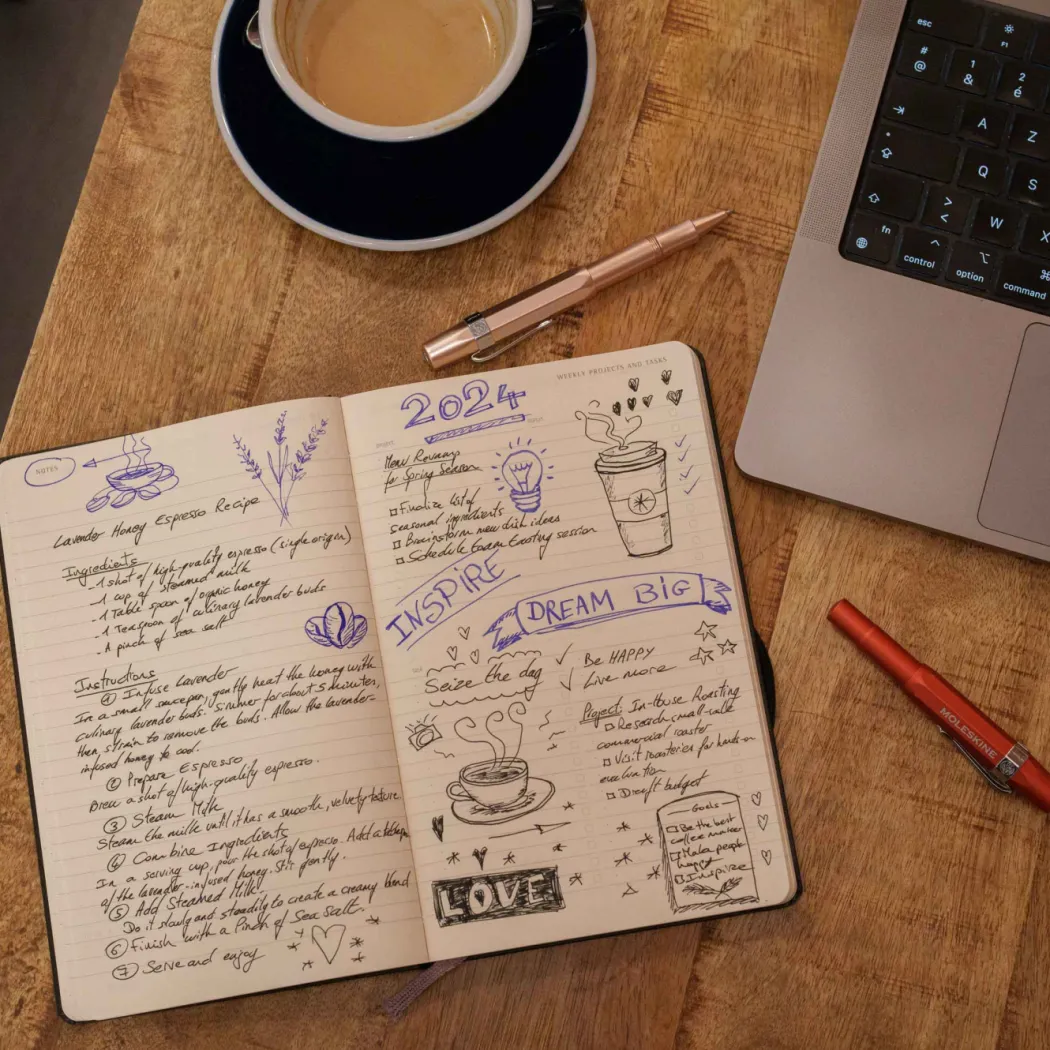 NOTES
Lavender Honey Espresso Recipe
Ingredients
- 1 shot of high-quality espresso (single origin)
- 1 cup of steamed milk
- 1 Table spoon of organic honey
- 1 Teaspoon of culinary lavender buds
- A pinch of sea salt
Instructions
① Infuse Lavender
In a small saucepan, gently heat the honey with
culinary lavender buds. Simmer for about 5 minutes,
then strain to remove the buds. Allow the lavender-
infused honey to cool.
② Prepare Espresso
Brew a shot of high-quality espresso.
③ Steam Milk
Steam the milk until it has a smooth, velvety texture.
④ Combine Ingredients
In a serving cup, pour the shot of espresso. Add a
of the lavender-infused honey. Stir gently.
⑤ Add Steamed Milk.
Do it slowly and steadily to create a creamy blend
⑥ Finish with a Pinch of Sea Salt.
⑦ Serve and enjoy
WEEKLY PROJECTS AND TASKS
2024
Menu Revamp
for Spring Season
□ Finalize list of
seasonal ingredients
□ Brainstorm new dish ideas
□ Schedule team tasting session
INSPIRE
DREAM BIG
Seize the day
✓ Be HAPPY
✓ Live more
Project: In-House Roasting
□ Research small-scale
commercial roaster
□ Visit roasteries for hands-on
evaluation
□ Draft budget
Goals
□ Be the best
coffee maker
□ Make people
happy
□ Inspire
LOVE
esc
F1
# @
1 &
2 é
A
Z
Q
S
> <
W
X
fn
control
option
command
MOLESKINE